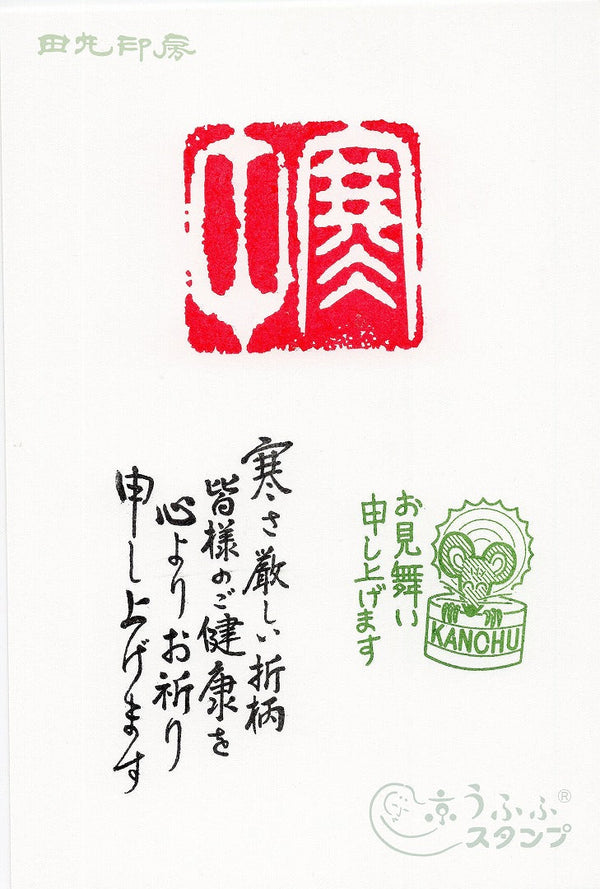 田丸印房
寒中
お見舞い
申し上げます
KANCHU
寒さ厳しい折柄
皆様のご健康を
心よりお祈り
申し上げます
京うふふ®
スタンプ